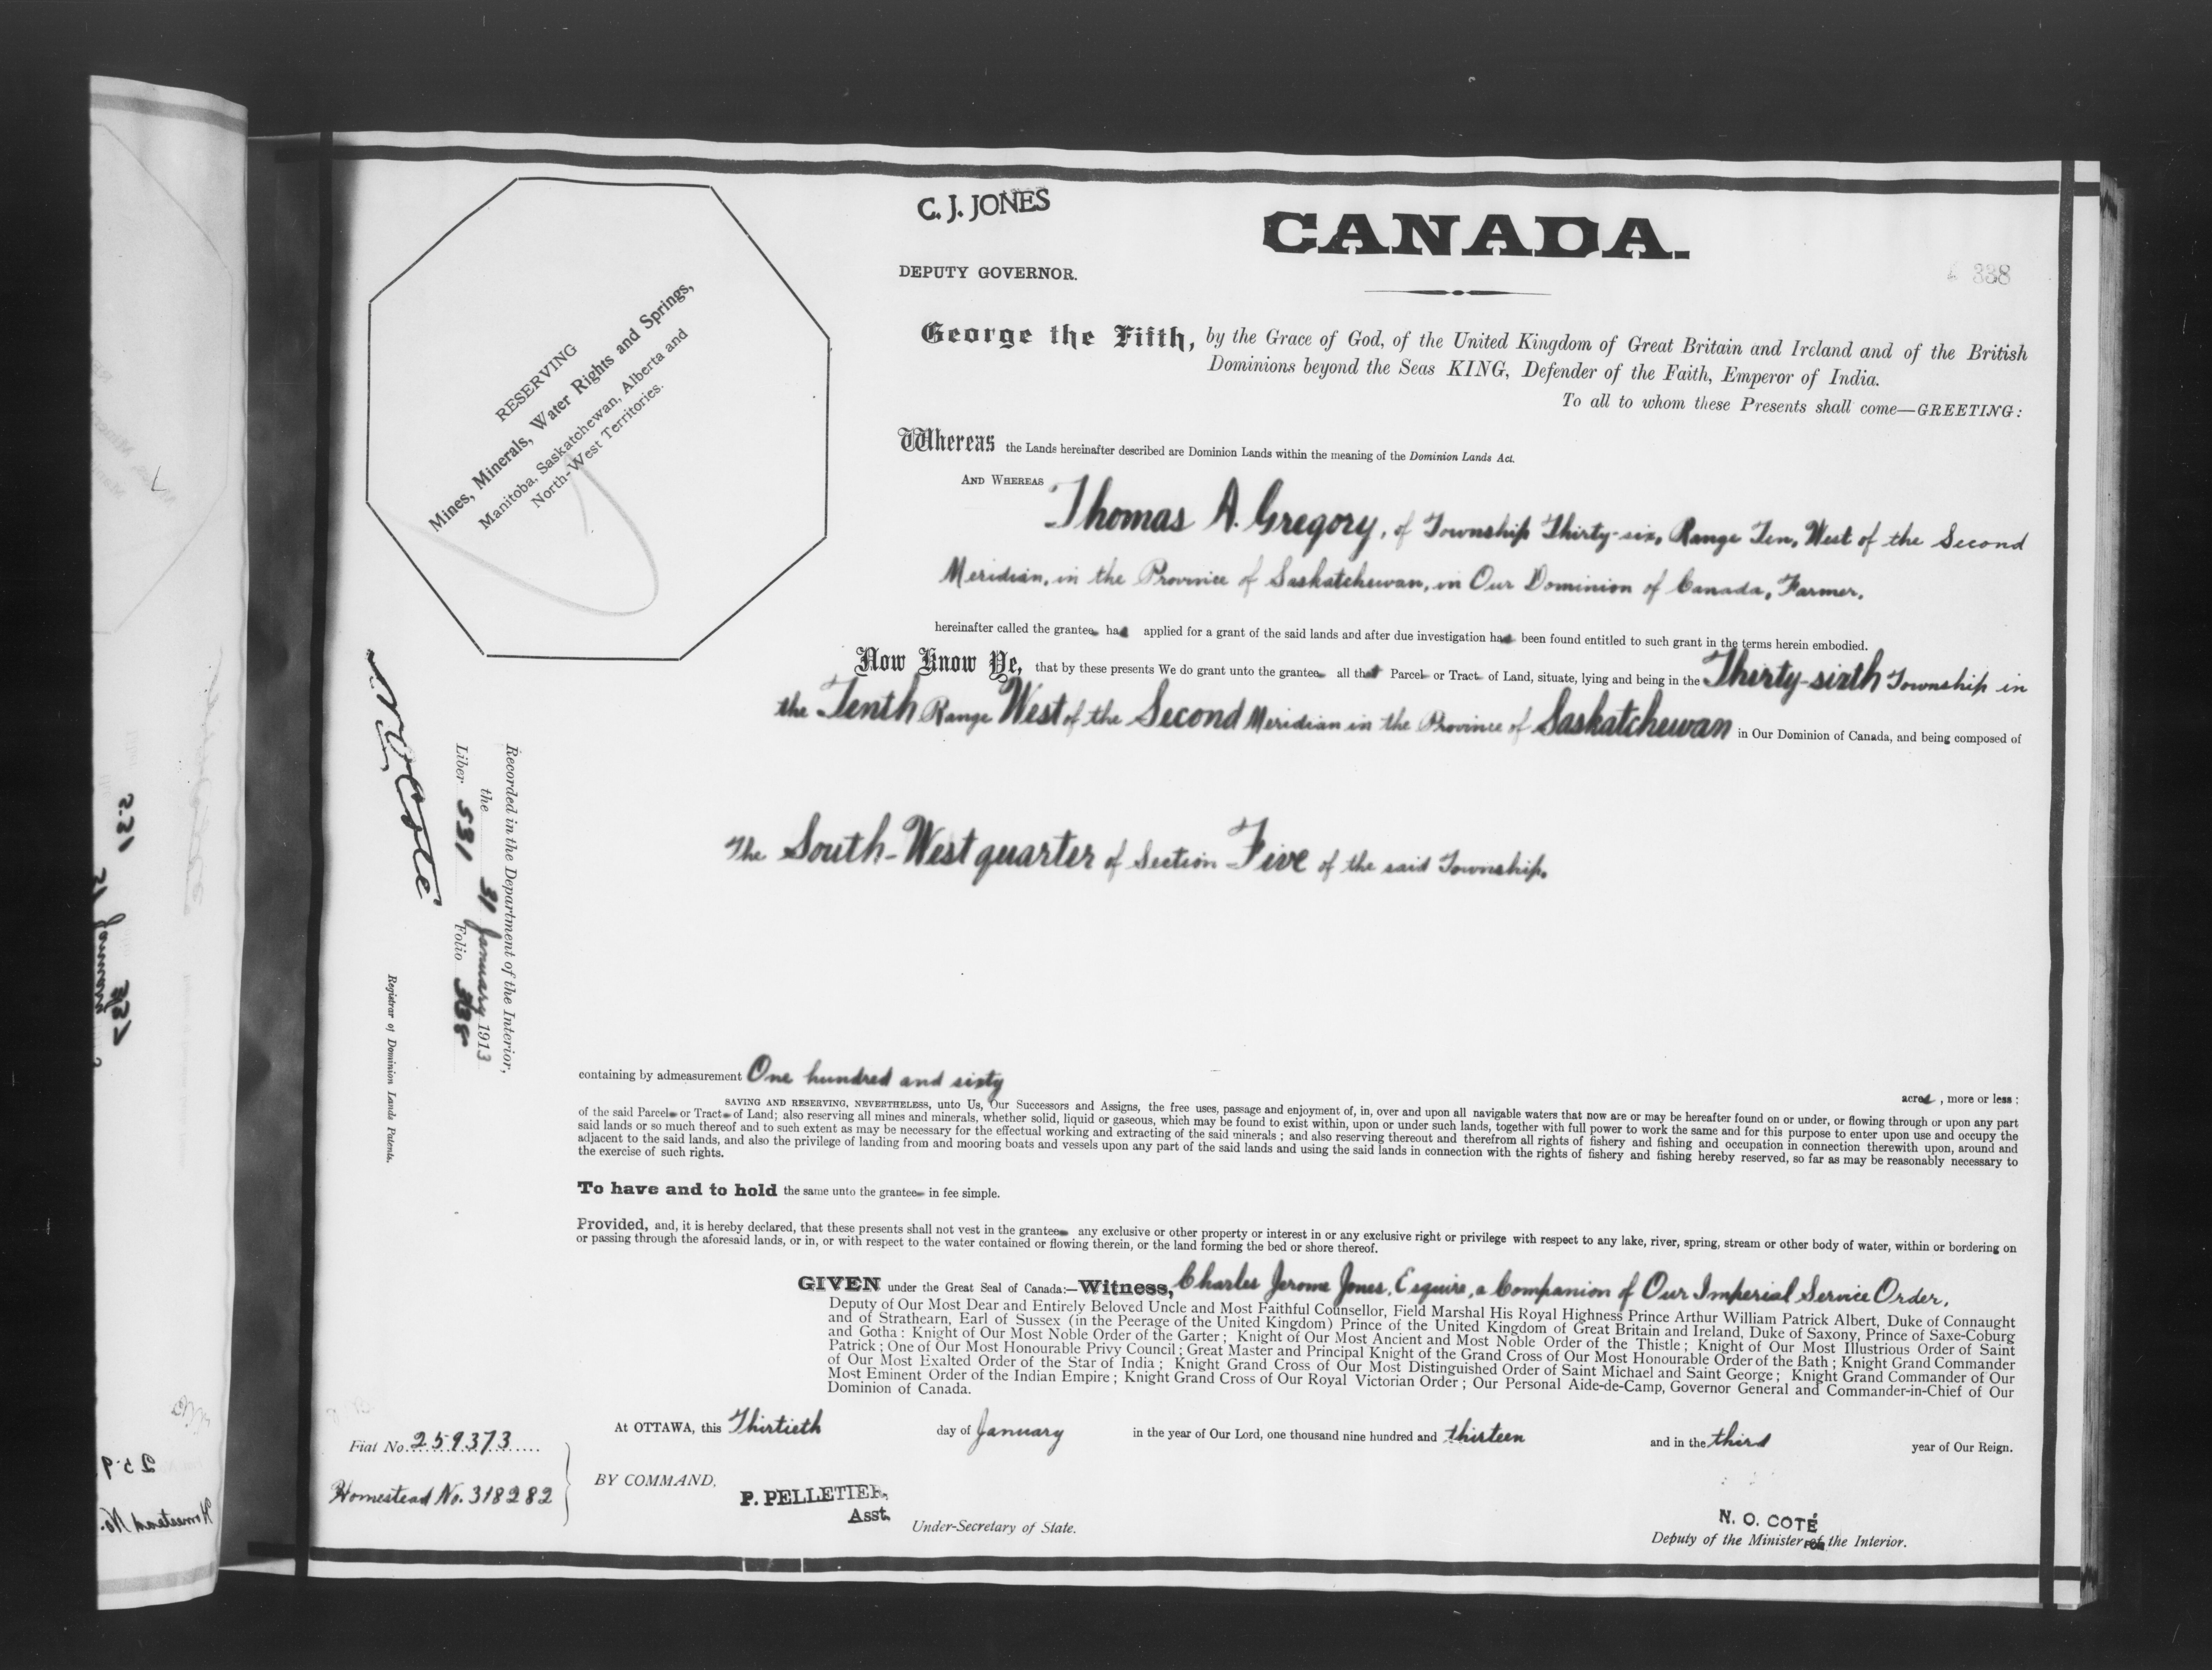 C. J. JONES
DEPUTY GOVERNOR.
CANADA.
338
RESERVING
Mines, Minerals, Water Rights and Springs,
Manitoba, Saskatchewan, Alberta and
North-West Territories.
George the Fifth, by the Grace of God, of the United Kingdom of Great Britain and Ireland and of the British
Dominions beyond the Seas KING, Defender of the Faith, Emperor of India.
To all to whom these Presents shall come—GREETING:
Whereas the Lands hereinafter described are Dominion Lands within the meaning of the Dominion Lands Act.
AND WHEREAS
Thomas A. Gregory, of Township Thirty-six, Range Ten, West of the Second
Meridian, in the Province of Saskatchewan, in Our Dominion of Canada, Farmer,
hereinafter called the grantee has applied for a grant of the said lands and after due investigation has been found entitled to such grant in the terms herein embodied.
Now Know Ye, that by these presents We do grant unto the grantee all that Parcel or Tract of Land, situate, lying and being in the Thirty-sixth Township in
the Tenth Range West of the Second Meridian in the Province of Saskatchewan in Our Dominion of Canada, and being composed of
The South-West quarter of Section Five of the said Township.
N O Coté
Registrar of Dominion Lands Patents.
Recorded in the Department of the Interior,
the 31 January 1913
Liber 531 Folio 338
containing by admeasurement One hundred and sixty acres, more or less:
SAVING AND RESERVING, NEVERTHELESS, unto Us, Our Successors and Assigns, the free uses, passage and enjoyment of, in, over and upon all navigable waters that now are or may be hereafter found on or under, or flowing through or upon any part
of the said Parcel or Tract of Land; also reserving all mines and minerals, whether solid, liquid or gaseous, which may be found to exist within, upon or under such lands, together with full power to work the same and for this purpose to enter upon use and occupy the
said lands or so much thereof and to such extent as may be necessary for the effectual working and extracting of the said minerals; and also reserving thereout and therefrom all rights of fishery and fishing and occupation in connection therewith upon, around and
adjacent to the said lands, and also the privilege of landing from and mooring boats and vessels upon any part of the said lands and using the said lands in connection with the rights of fishery and fishing hereby reserved, so far as may be reasonably necessary to
the exercise of such rights.
To have and to hold the same unto the grantee in fee simple.
Provided, and, it is hereby declared, that these presents shall not vest in the grantee any exclusive or other property or interest in or any exclusive right or privilege with respect to any lake, river, spring, stream or other body of water, within or bordering on
or passing through the aforesaid lands, or in, or with respect to the water contained or flowing therein, or the land forming the bed or shore thereof.
GIVEN under the Great Seal of Canada:—Witness, Charles Jerome Jones, Esquire, a Companion of Our Imperial Service Order,
Deputy of Our Most Dear and Entirely Beloved Uncle and Most Faithful Counsellor, Field Marshal His Royal Highness Prince Arthur William Patrick Albert, Duke of Connaught
and of Strathearn, Earl of Sussex (in the Peerage of the United Kingdom) Prince of the United Kingdom of Great Britain and Ireland, Duke of Saxony, Prince of Saxe-Coburg
and Gotha: Knight of Our Most Noble Order of the Garter; Knight of Our Most Ancient and Most Noble Order of the Thistle; Knight of Our Most Illustrious Order of Saint
Patrick; One of Our Most Honourable Privy Council; Great Master and Principal Knight of the Grand Cross of Our Most Honourable Order of the Bath; Knight Grand Commander
of Our Most Exalted Order of the Star of India; Knight Grand Cross of Our Most Distinguished Order of Saint Michael and Saint George; Knight Grand Commander of Our
Most Eminent Order of the Indian Empire; Knight Grand Cross of Our Royal Victorian Order; Our Personal Aide-de-Camp, Governor General and Commander-in-Chief of Our
Dominion of Canada.
At OTTAWA, this Thirtieth day of January in the year of Our Lord, one thousand nine hundred and thirteen and in the third year of Our Reign.
Fiat No. 259373
Homestead No. 318282
BY COMMAND,
P. PELLETIER,
Asst.
Under-Secretary of State.
N. O. COTÉ
Deputy of the Minister of the Interior.